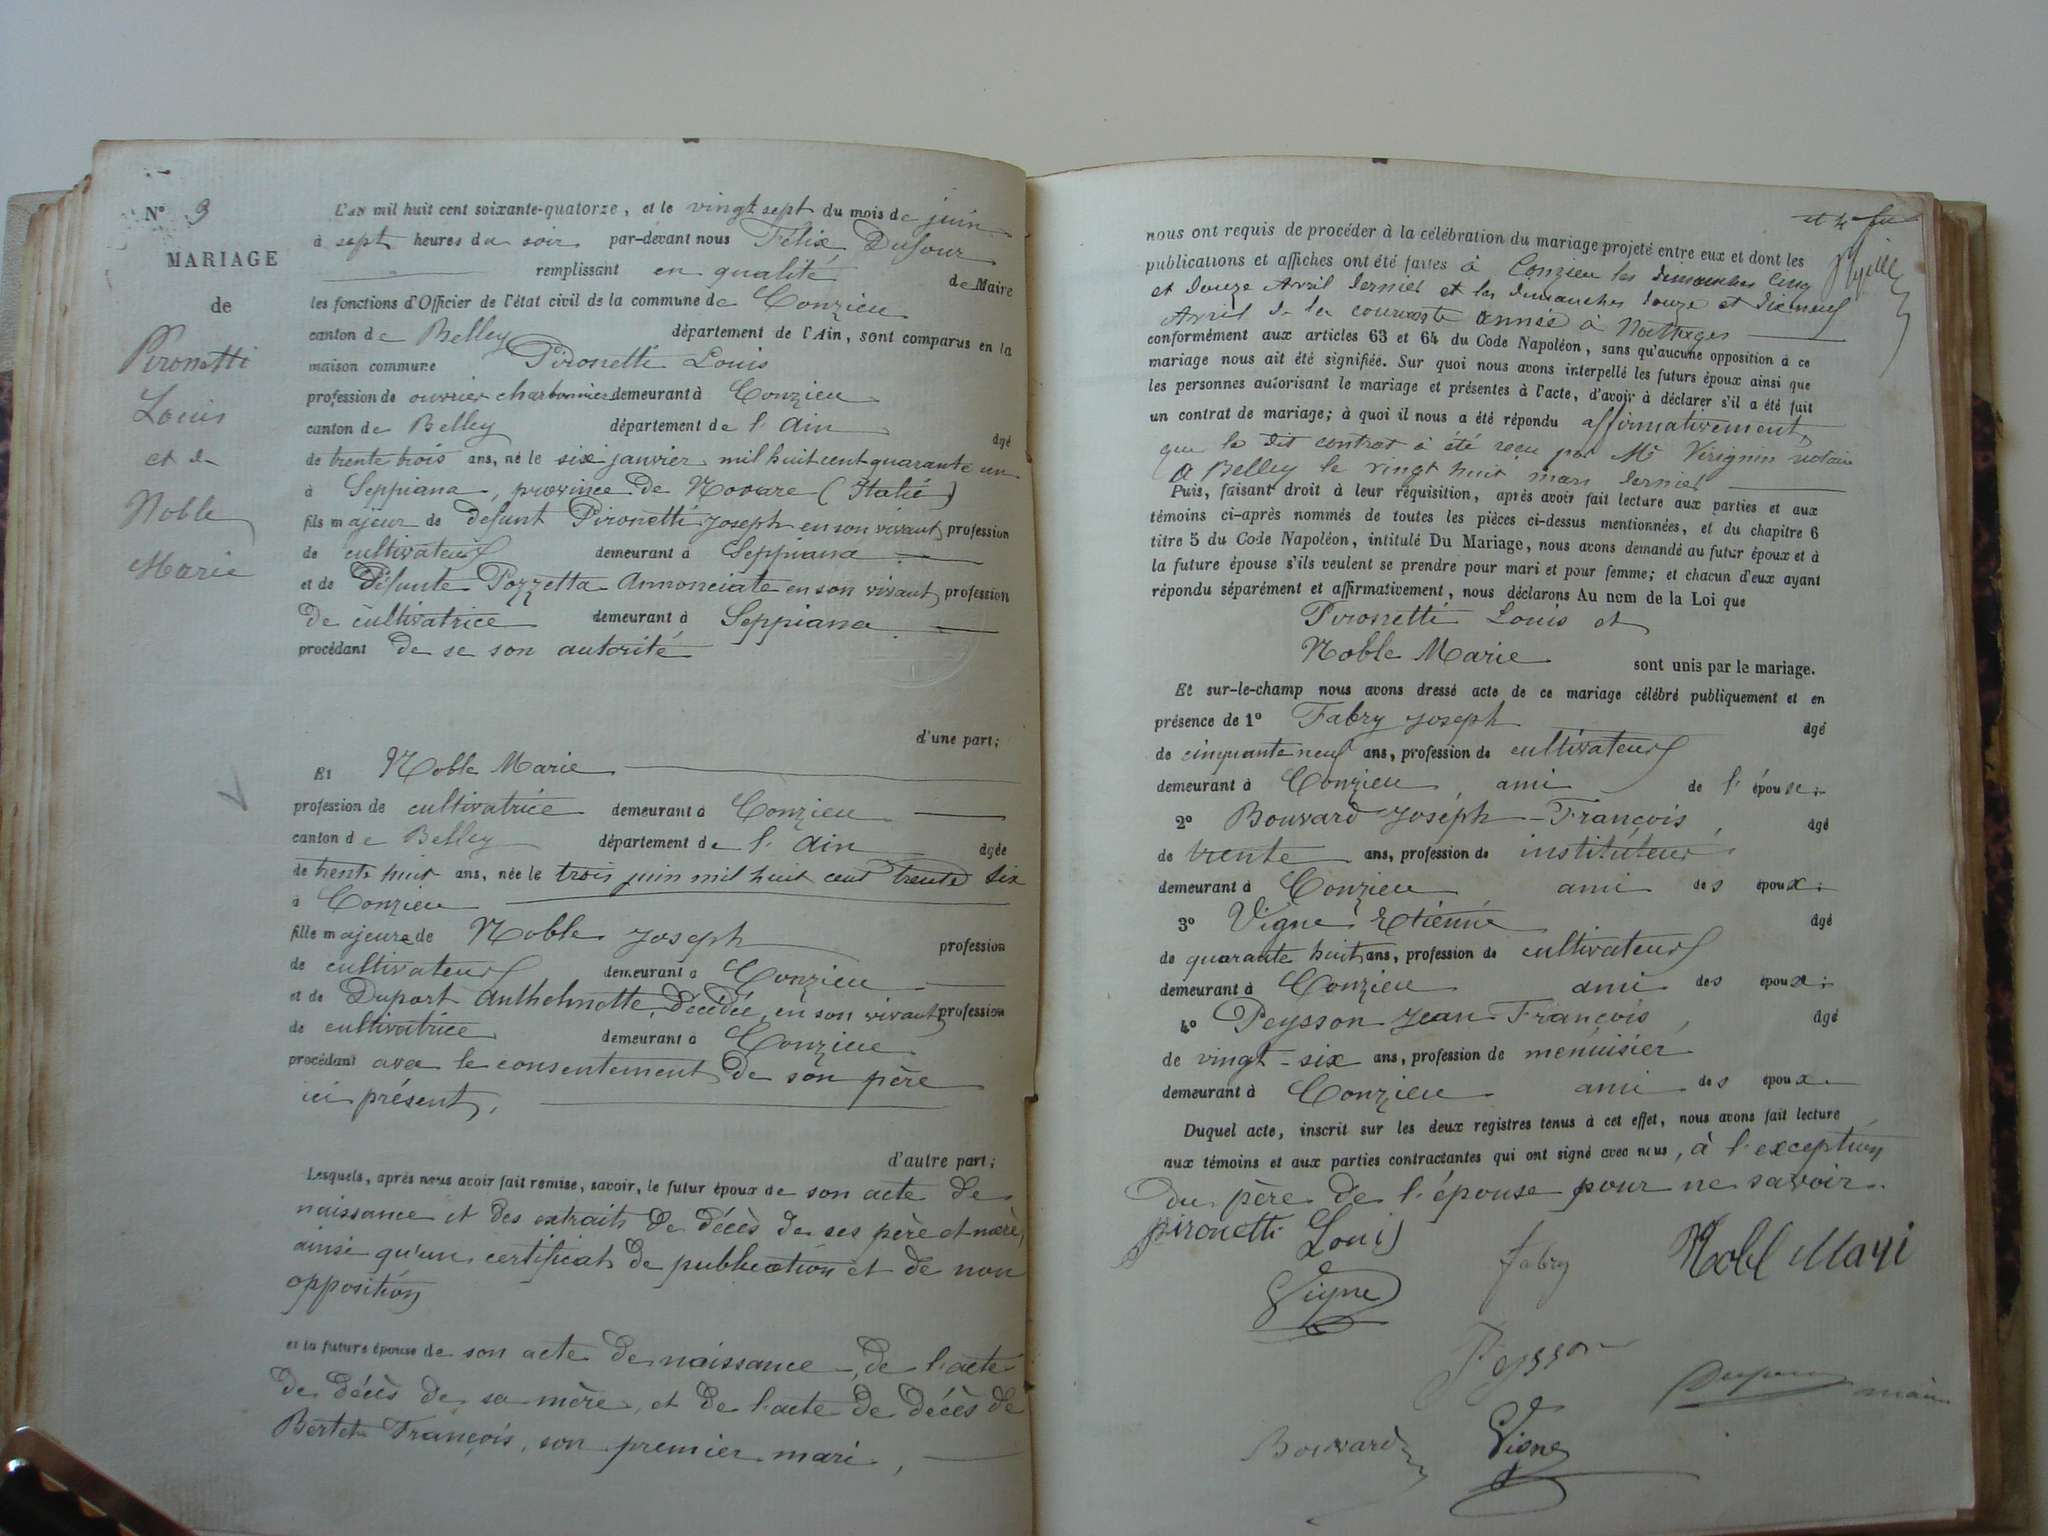 N° 3
MARIAGE
de
Pironetti
Louis
et de
Noble
Marie
L'an mil huit cent soixante-quatorze, et le vingt sept du mois de juin
à sept heures du soir par-devant nous Félix Dufour
remplissant en qualité de Maire
les fonctions d'Officier de l'état civil de la commune de Conzieu
canton de Belley département de l'Ain, sont comparus en la
maison commune Pironetti Louis
profession de ouvrier charbonnier demeurant à Conzieu
canton de Belley département de l'Ain âgé
de trente trois ans, né le six janvier mil huit cent quarante un
à Seppiana, province de Novare (Italie)
fils majeur de defunt Pironetti Joseph en son vivant profession
de cultivateur demeurant à Seppiana
et de Défunte Pozzetta Annonciate en son vivant profession
de cultivatrice demeurant à Seppiana
procédant de se son autorité
d'une part;
Et Noble Marie
profession de cultivatrice demeurant à Conzieu
canton de Belley département de l'Ain âgée
de trente huit ans, née le trois juin mil huit cent trente six
à Conzieu
fille majeure de Noble Joseph profession
de cultivateur demeurant à Conzieu
et de Duport Anthelmette, décédée, en son vivant profession
de cultivatrice demeurant à Conzieu
procédant avec le consentement de son père
ici présent,
d'autre part;
Lesquels, après nous avoir fait remise, savoir, le futur époux de son acte de
naissance et des extraits de décès de ses père et mère,
ainsi qu'un certificat de publication et de non
opposition
et la future épouse de son acte de naissance, de l'acte
de décès de sa mère, et de l'acte de décès de
Bertet François, son premier mari,
nous ont requis de procéder à la célébration du mariage projeté entre eux et dont les
publications et affiches ont été faites à Conzieu les dimanches cinq
et douze Avril dernier et les dimanches douze et dix neuf
Avril de la courante année à Nattages
conformément aux articles 63 et 64 du Code Napoléon, sans qu'aucune opposition à ce
mariage nous ait été signifiée. Sur quoi nous avons interpellé les futurs époux ainsi que
les personnes autorisant le mariage et présentes à l'acte, d'avoir à déclarer s'il a été fait
un contrat de mariage; à quoi il nous a été répondu affirmativement,
que le dit contrat à été reçu par Me notaire
à Belley le vingt huit mars dernier
Puis, faisant droit à leur réquisition, après avoir fait lecture aux parties et aux
témoins ci-après nommés de toutes les pièces ci-dessus mentionnées, et du chapitre 6
titre 5 du Code Napoléon, intitulé Du Mariage, nous avons demandé au futur époux et à
la future épouse s'ils veulent se prendre pour mari et pour femme; et chacun d'eux ayant
répondu séparément et affirmativement, nous déclarons Au nom de la Loi que
Pironetti Louis et
Noble Marie sont unis par le mariage.
Et sur-le-champ nous avons dressé acte de ce mariage célébré publiquement et en
présence de 1° Fabry Joseph âgé
de cinquante neuf ans, profession de cultivateur
demeurant à Conzieu, ami de l'épouse;
2° Bouvard Joseph-François, âgé
de trente ans, profession de instituteur
demeurant à Conzieu ami des époux;
3° Vigne Etienne âgé
de quarante huit ans, profession de cultivateur
demeurant à Conzieu ami des époux;
4° Peysson Jean François, âgé
de vingt-six ans, profession de menuisier
demeurant à Conzieu ami des époux.
Duquel acte, inscrit sur les deux registres tenus à cet effet, nous avons fait lecture
aux témoins et aux parties contractantes qui ont signé avec nous, à l'exception
du père de l'épouse pour ne savoir.
pironetti Louis
fabry
Nobl Mari
Vigne
Peysson
maire
Bouvard
Vigne